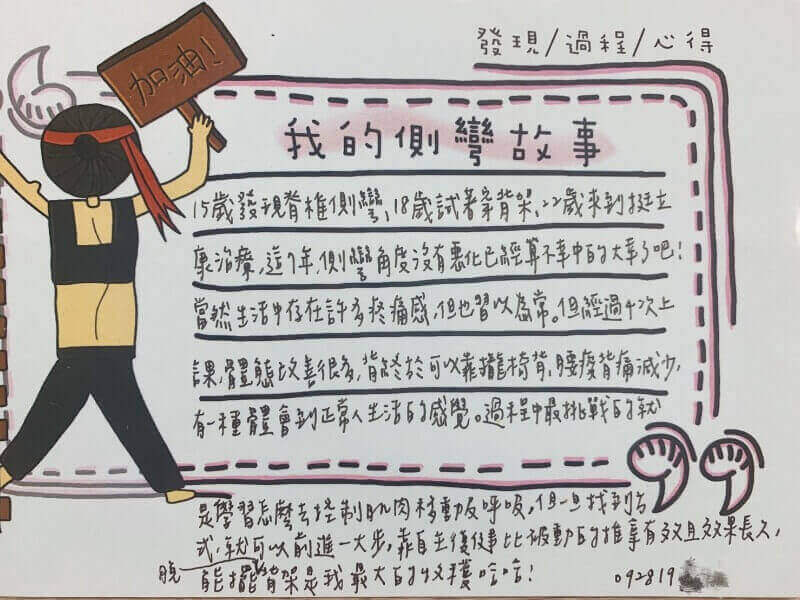 發現/過程/心得
加油!
我的側彎故事
15歲發現脊椎側彎、18歲試著穿背架、22歲來到挺立
康治療,這7年,側彎角度沒有惡化已經算不幸中的大幸了吧!
當然生活中存在許多疼痛感,但也習以為常。但經過十次上
課,體態改善很多,背終於可以靠攏椅背,腰痠背痛減少,
有一種體會到正常人生活的感覺。過程中最挑戰的就
是學習怎麼去控制肌肉移動及呼吸,但一旦找到
式,就可以前進一大步,靠自主復健比被動的推拿有效且效果長久,
能擺脫背架是我最大的收穫哈哈!
092819